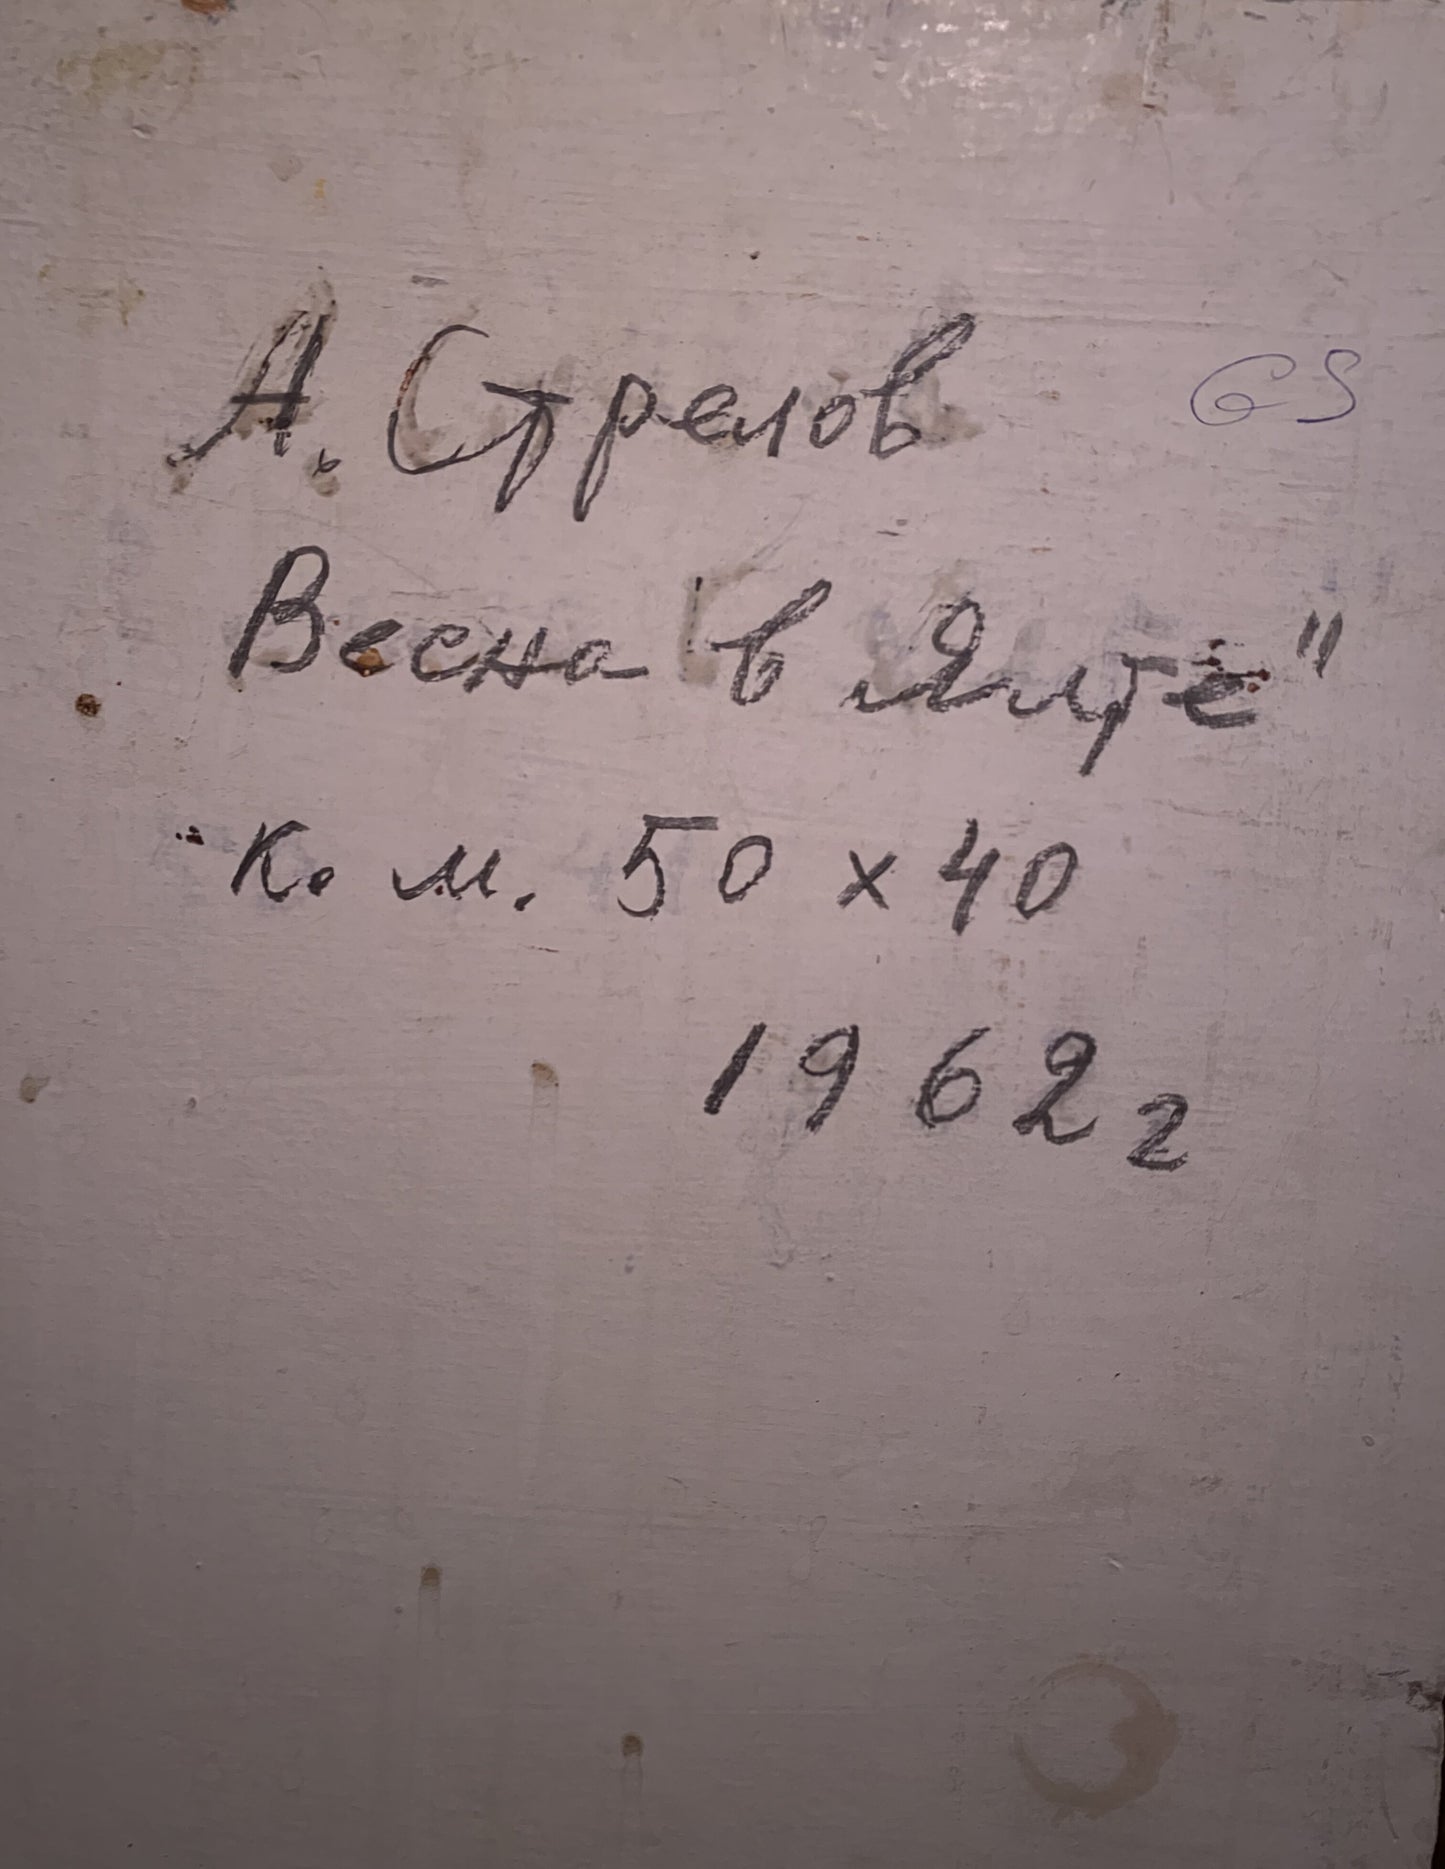 А. Стрелов GS
Весна в Ялте"
к. м. 50 x 40
1962 г